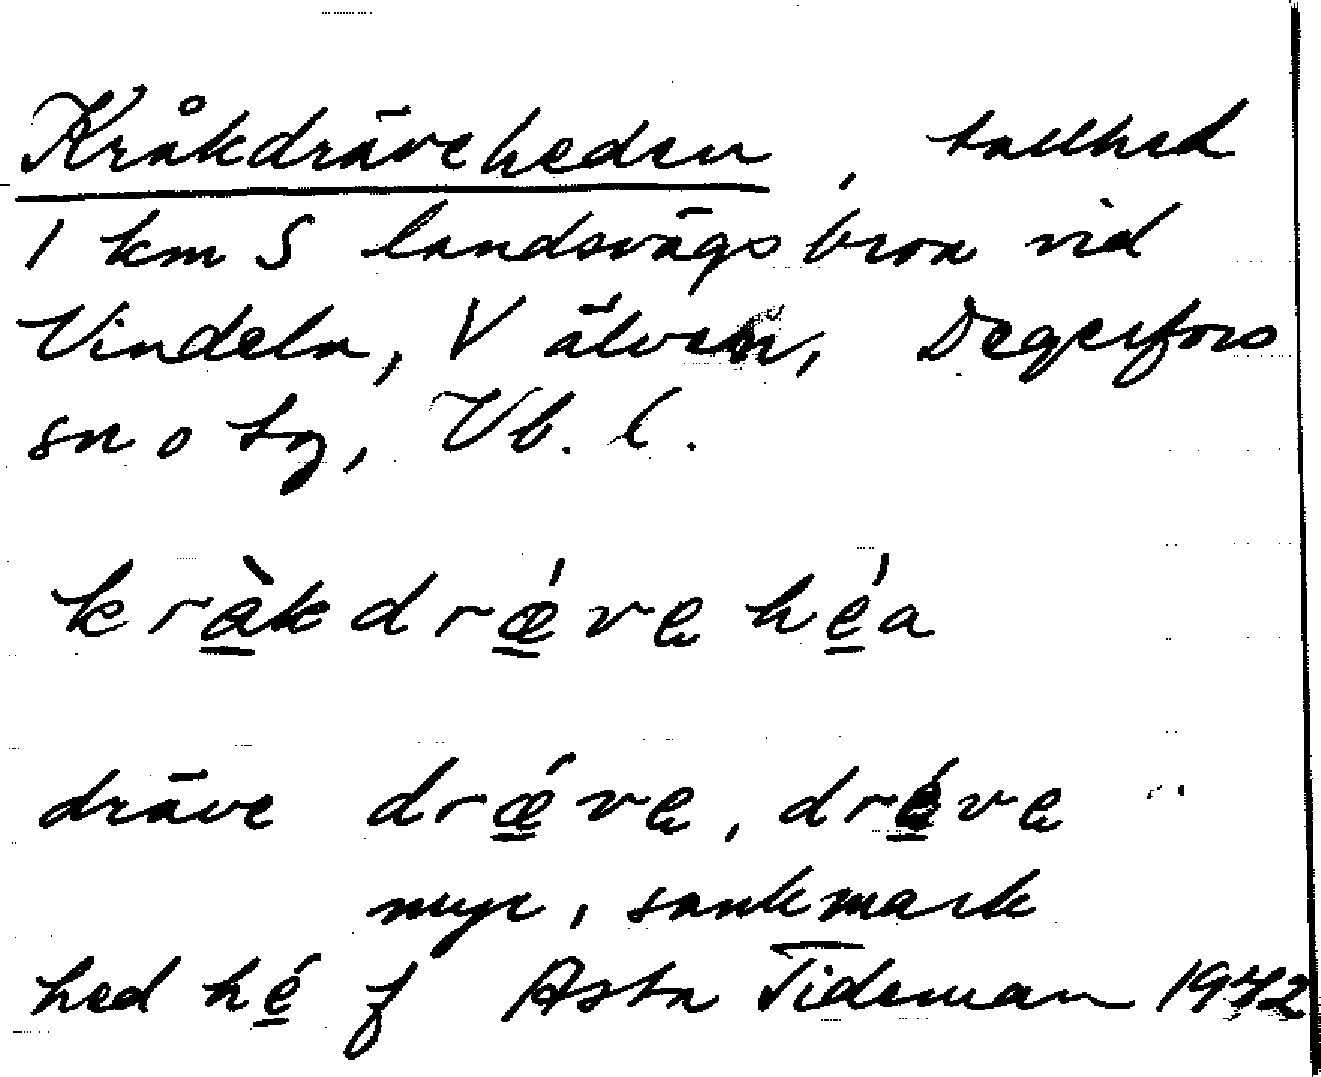 Kråkdräveheden, tallhed
1 km S landsvägsbron vid
Vindeln, V älven, Degerfors
sn o tg, Vb. l.
kràkdrǽvęhéa
dräve drǽvę, drévę
myr, sankmark
hed hé f Asta Tideman 1942